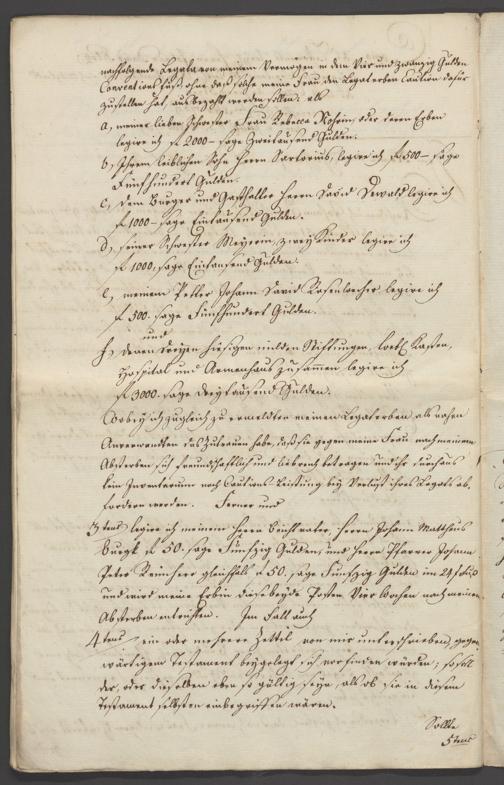 nachfolgende Legata von meinem Vermögen in dem Vier und zwanzig Gulden
Conventions Fuß, ohne daß solche meine Frau den Legaterben Caution dafür
zustellen hat, ausbezahlt werden sollen: als
a, meiner lieben Schwester Frau Rebecca, oder deren Erben
legire ich fl 2000 – sage Zweitausend Gulden.
b, Ihrem leiblichen Sohn Herrn Sartorius, legire ich fl. 500 – sage
Fünfhundert Gulden.
c, dem Burger und Gasthalter Herrn David Dewald legire ich
fl 1000 – sage Eintausend Gulden.
d, seiner Schwester Meyerin, zwey Kinder legire ich
fl 1000, sage Eintausend Gulden.
e, meinem Petter Johann David Rosenlöcher legire ich
fl 500. sage Fünfhundert Gulden.
und
f, denen dreyen hiesigen milden Stiftungen, Kasten,
Hospital und Armenhaus zusammen legire ich
fl 3000. sage dreytausend Gulden.
Wobey ich zugleich zu ermeldten meinen Legaterben, als nahen
Anverwandten das Zutrauen habe, daß sie gegen meine Frau nach meinem
Absterben sich freundschaftlich und liebreich betragen und ihr durchaus
kein Inventarium noch Cautions-Leistung bey Verlust ihres Legats ab,
fordern werden. Ferner und
3tens legire ich meinem Herrn Beichtvater, Herrn Johann Matthäus
fl 50. sage Fünfzig Gulden, und Herrn Pfarrer Johann
Peter gleichfalls fl 50. sage Fünfzig Gulden im 24 f Fuß
und wird meine Erbin diese beyde Posten Vier Wochen nach meinem
Absterben entrichten. Im Fall auch
4tens ein oder mehrere Zettel von mir unterschrieben, gegen
wärtigem Testament beygelegt sich vorfinden würden; so soll
der, oder dieselben eben so gültig seyn, als ob sie in diesem
Testament selbsten einbegriffen wären.
Sollte
5tens